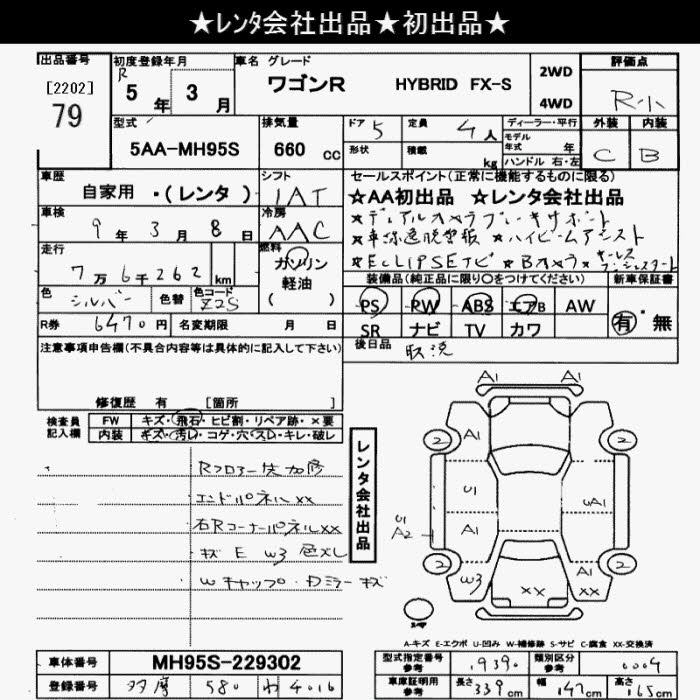 ★レンタ会社出品★初出品★
出品番号 初度登録年月 車名 グレード 評価点
[2202] R 5年 3月 ワゴンR HYBRID FX-S 2WD R小
79 4WD
型式 排気量 ドア 5 定員 4人 ディーラー・平行 外装 内装
5AA-MH95S 660 cc 形状 積載 kg モデル年式 年 C B
ハンドル 右・左
車歴 シフト セールスポイント(正常に機能するものに限る)
自家用 ・(レンタ) IAT ★AA初出品 ★レンタ会社出品
車検 冷房 ★デュアルカメラブレーキサポート
9年 3月 8日 AAC ★車線逸脱警報 ★ハイビームアシスト
走行 燃料 ★ECLIPSEナビ ★Bカメラ
7万6千262 km ガソリン 装備品(純正品に限り○をつけてください) 新車保証書
色 シルバー 色替 色コード Z2S 軽油 PS PW ABS エアB AW 有・無
R券 6470円 名変期限 月 日 SR ナビ TV カワ
注意事項申告欄(不具合内容等は具体的に記入して下さい) 後日品 取説
修復歴 有 [箇所 ]
検査員 FW キズ・飛石・ヒビ割・リペア跡・×要
記入欄 内装 キズ・汚レ・コゲ・穴・スレ・キレ・破レ
Rフロアー
エンドパネルXX
右RコーナーパネルXX
キズ E W3 色
Wキャップ・Dミラーキズ
レンタ会社出品
A1 A1
2 A1 2
U1 UA1
U1 A2 A1
2 2
W3 XX A1 XX
A-キズ E-エクボ U-凹み W-補修跡 S-サビ C-腐食 XX-交換済
車体番号 MH95S-229302 型式指定番号 参考 19390 類別区分 参考 0004
登録番号 多摩 580 わ 4016 車庫証明用 参考 長さ 339cm 幅 147cm 高さ 165cm